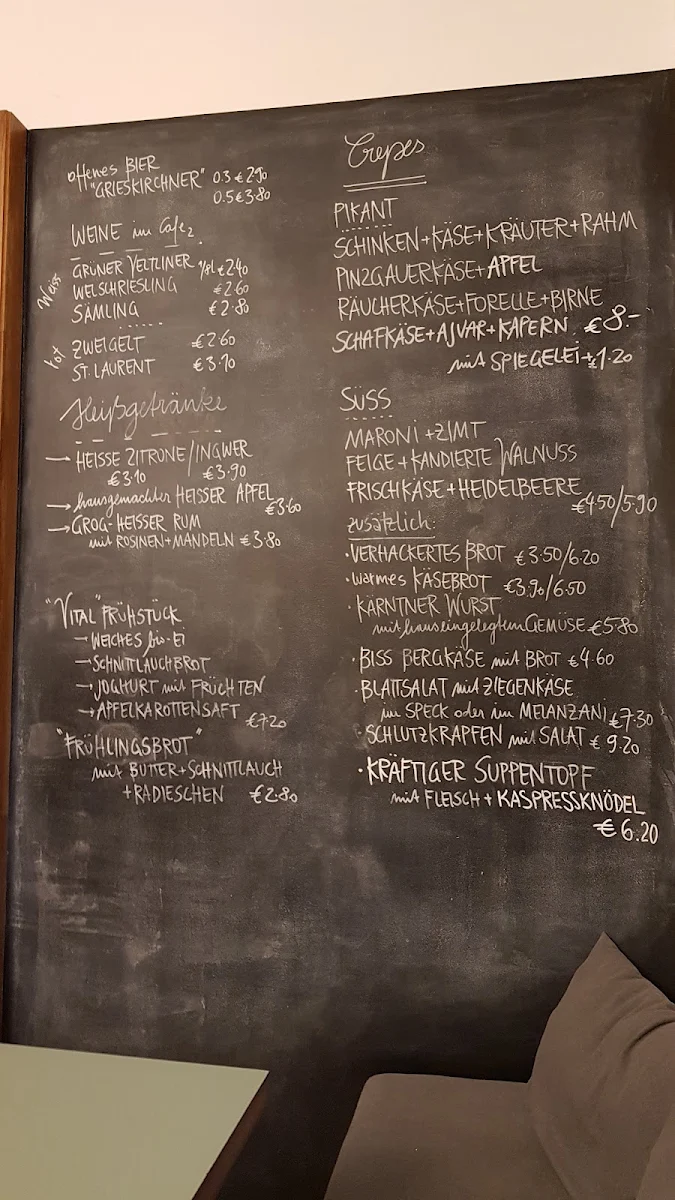 offenes BIER
"GRIESKIRCHNER" 0.3 € 2.90
0.5 € 3.80
WEINE im Cafe
Weiss
GRÜNER VELTLINER 1/8l € 2.40
WELSCHRIESLING € 2.60
SÄMLING € 2.80
rot
ZWEIGELT € 2.60
ST. LAURENT € 3.70
Heißgetränke
→ HEISSE ZITRONE/INGWER
€ 3.10 € 3.90
→ hausgemachter HEISSER APFEL
€ 3.60
→ GROG-HEISSER RUM
mit ROSINEN+MANDELN € 3.80
"VITAL" FRÜHSTÜCK
→ WEICHES bio-Ei
→ SCHNITTLAUCHBROT
→ JOGHURT mit FRÜCHTEN
→ APFELKAROTTENSAFT
€ 7.20
"FRÜHLINGSBROT"
mit BUTTER+SCHNITTLAUCH
+RADIESCHEN € 2.80
Crepes
PIKANT
SCHINKEN+KÄSE+KRÄUTER+RAHM
PINZGAUERKÄSE+APFEL
RÄUCHERKÄSE+FORELLE+BIRNE
SCHAFKÄSE+AJVAR+KAPERN € 8.-
mit SPIEGELEI+€ 1.20
SÜSS
MARONI+ZIMT
FEIGE+KANDIERTE WALNUSS
FRISCHKÄSE+HEIDELBEERE
€ 4.50/5.90
zusätzlich:
· VERHACKERTES BROT € 3.50/6.20
· warmes KÄSEBROT € 3.90/6.50
· KÄRNTNER WURST
mit hauseingelegtem GEMÜSE € 5.80
· BISS BERGKÄSE mit BROT € 4.60
· BLATTSALAT mit ZIEGENKÄSE
im SPECK oder im MELANZANI € 7.30
· SCHLUTZKRAPFEN mit SALAT € 9.20
· KRÄFTIGER SUPPENTOPF
mit FLEISCH + KASPRESSKNÖDEL
€ 6.20